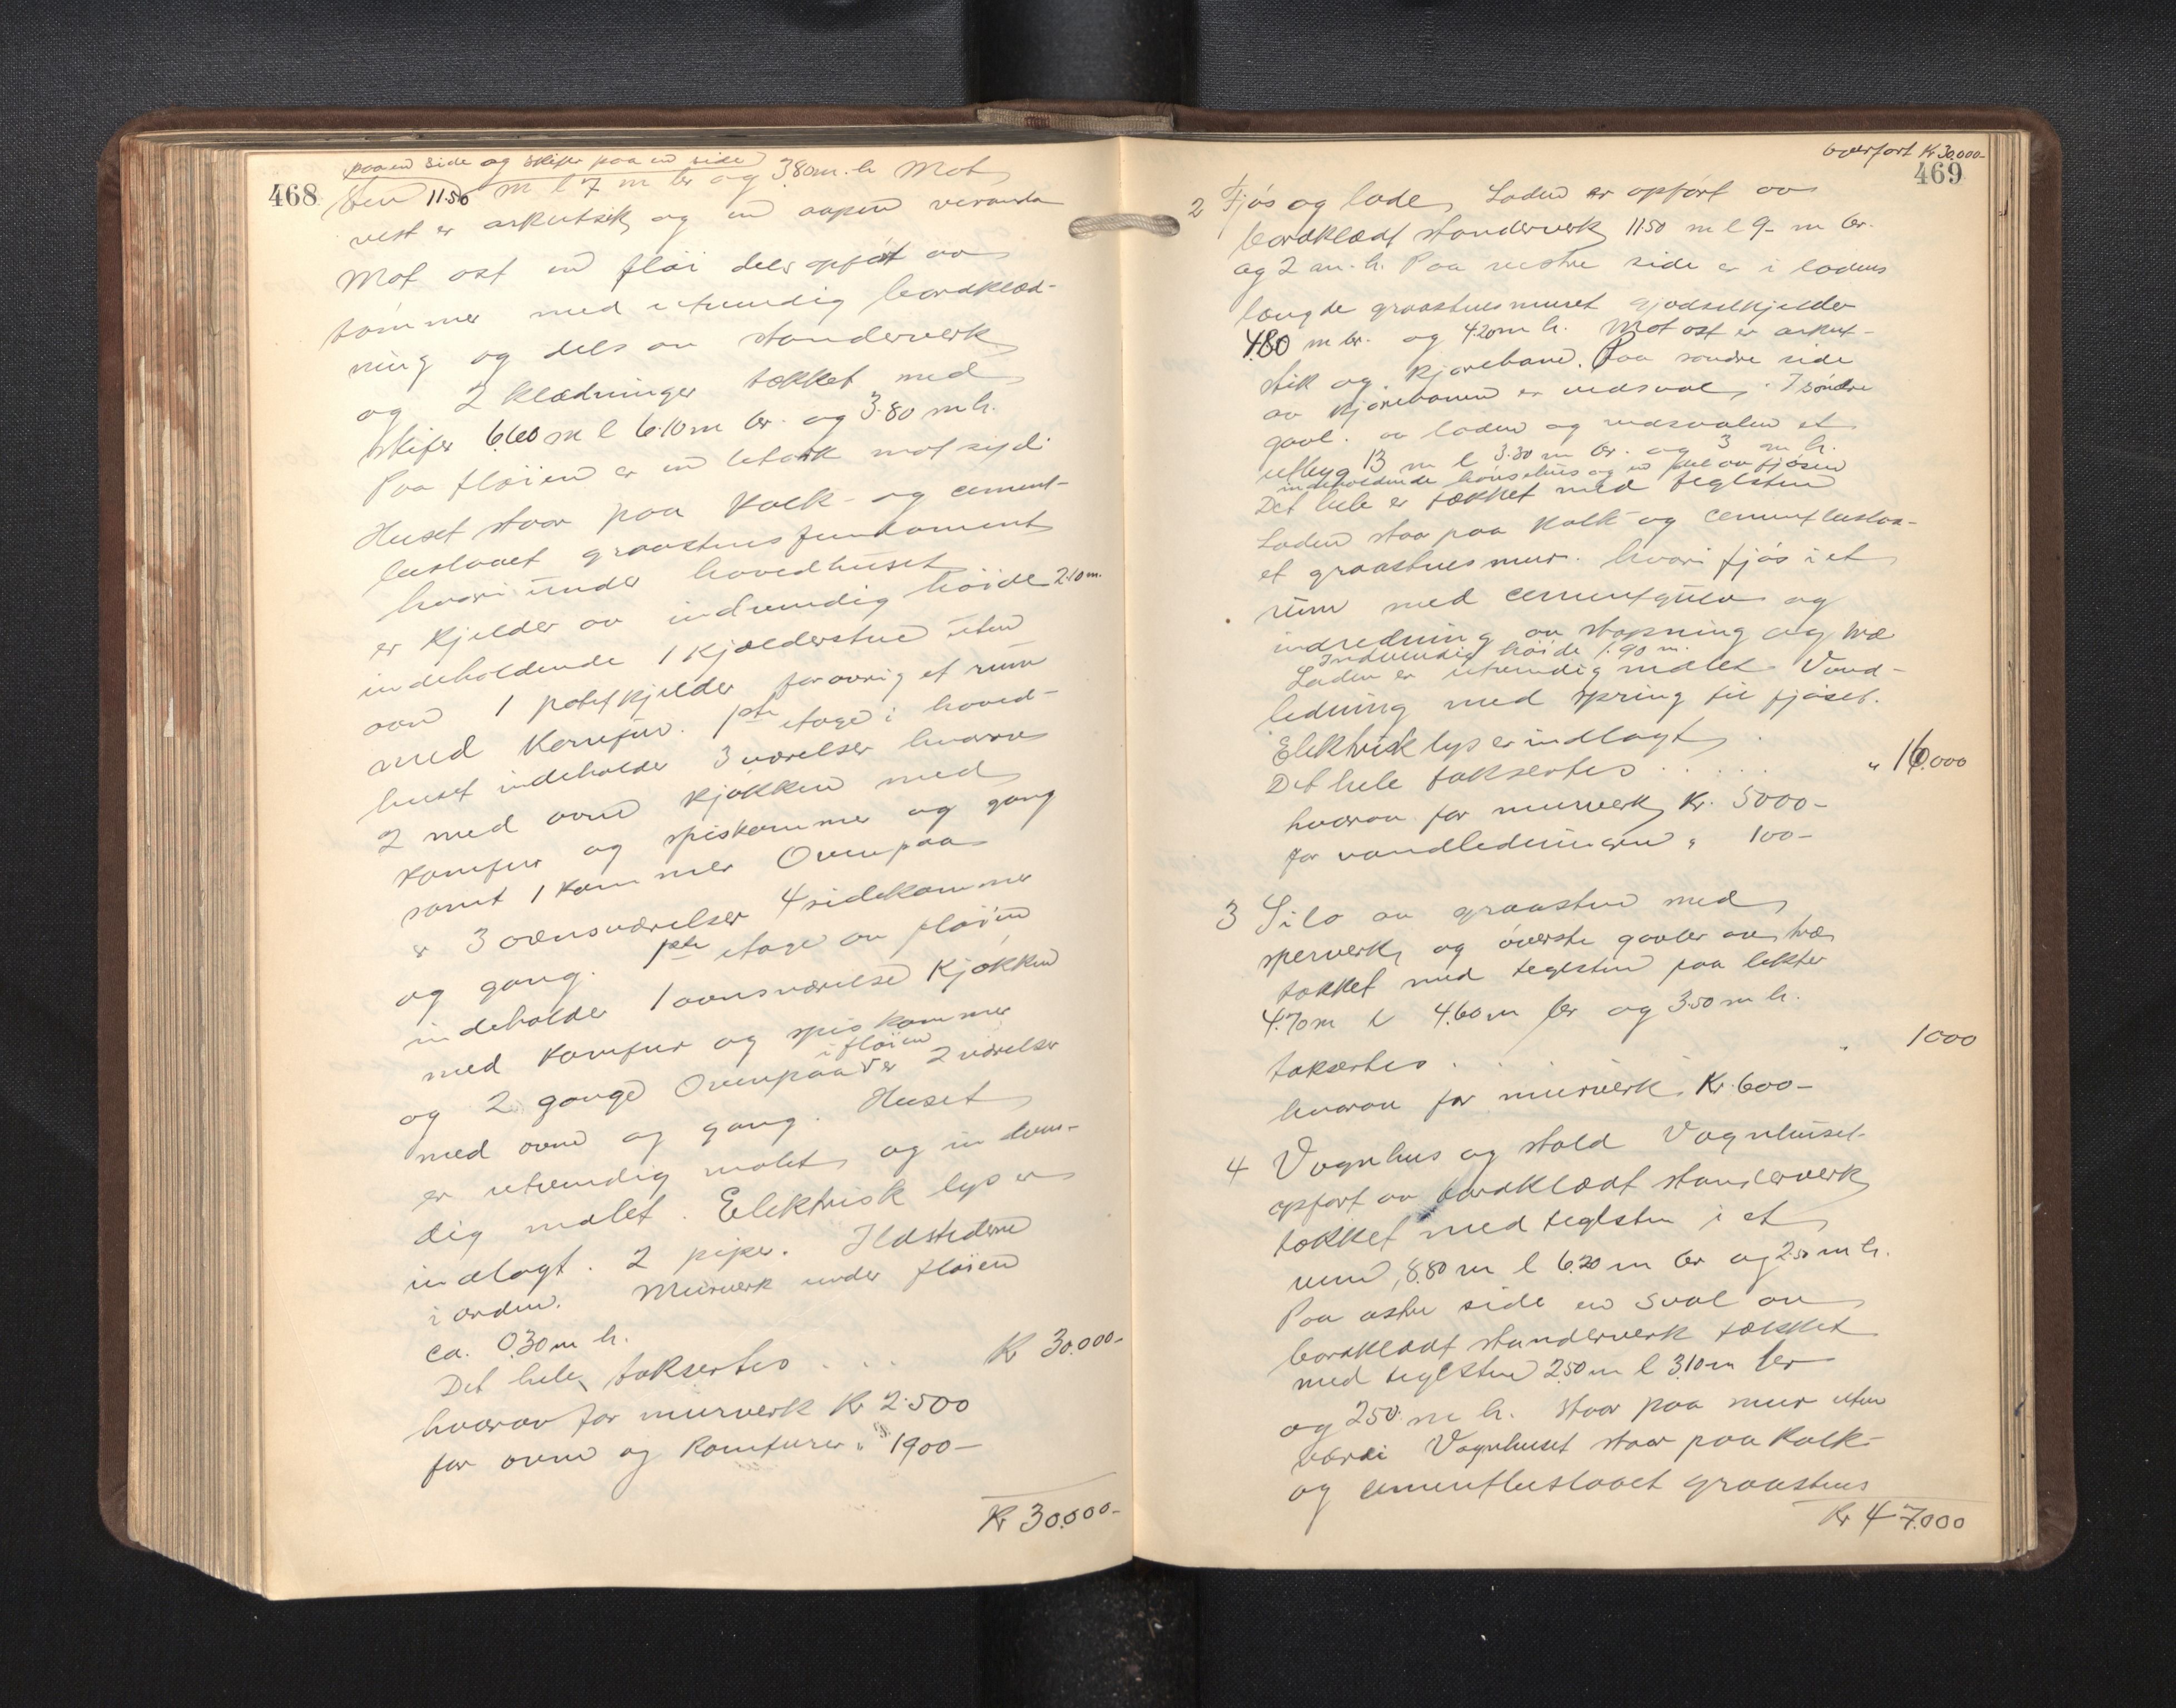 468
paa en side og skifer paa en side
sten 11.50 m l 7 m br og 3.80 m. h Mot
vest er arkutstik og en aapen veranda
Mot ost en fløi dels opført av
tømmer med utvendig bordklæd-
ning og dels av standerverk
og 2 klædninger tækket med
skifer 6.60 m l 6.10 m br. og 3.80 m h.
Paa fløien er en letark mot syd.
Huset staar paa kalk- og cement-
beslaaet graastensfundament
hvori under hovedhuset
er kjelder av indvendig høide 2.10 m.
indeholdende 1 kjælderstue uten
ovn 1 potetkjelder forøvrig et rum
med komfur. 1ste etage i hoved-
huset indeholder 3 værelser hvorav
2 med ovne kjøkken med
komfur og spiskammer og gang
samt 1 kammer Ovenpaa
er 3 ovnsværelser 4 sidekammer
og gang. 1ste etage av fløien
indeholder 1 ovnsværelse kjøkken
med komfur og spiskammer
og 2 gange Ovenpaa i fløien er 2 værelser
med ovne og gang. Huset
er utvendig malet og indven-
dig malet. Elektrisk lys er
indlagt. 2 piper. Ildstederne
i orden. Murverk under fløien
ca. 0.30 m h.
Det hele taksertes . . . Kr 30.000-
hvorav for murverk Kr 2.500
for ovne og komfurer " 1900-
Kr 30.000-
Overført Kr 30.000-
469
2 Fjøs og lade, Laden er opført av
bordklædt standerverk 11.50 m l 9- m br.
og 2 m. h. Paa vestre side er i ladens
længde graastensmuret gjødselkjelder
4.80 m br. og 4.20 m h. Mot ost er arkut-
stik og kjørebane. Paa søndre side
av kjørebanen er vedsval, I søndre
gavl. av laden og vedsvalen et
utbyg 13 m l 3.30 m br. og 3 m h.
indeholdende hønsehus og en del av fjøsen
Det hele er tækket med teglsten
Laden staa paa kalk og cementbeslaa-
et graastensmur. hvori fjøs i et
rum med cementgulv og
indredning av støpning og træ
Indvendig høide 1.90 m.
Laden er utvendig malet Vand-
ledning med spring til fjøset.
Elektrisk lys er indlagt
Det hele taksertes . . . . . " 16.000
hvorav for murverk Kr. 5000-
for vandledningen " 100-
3 Silo av graasten med
sperverk og øverste gavler av træ
tækket med teglsten paa lekter
4.70 m l 4.60 m br og 3.50 m h.
taksertes . " 1000
hvorav for murverk Kr. 600-
4 Vognhus og stald Vognhuset
opført av bordklædt standerverk
tækket med teglsten i et
rum, 8.80 m l 6.20 m br og 2.50 m h.
Paa østre side en sval av
bordklædt standerverk tækket
med teglsten 2.50 m l 3.10 m br
og 2.50 m h. staar paa mur uten
værdi Vognhuset staar paa kalk-
og cementbeslaaet graastens
Kr 47.000